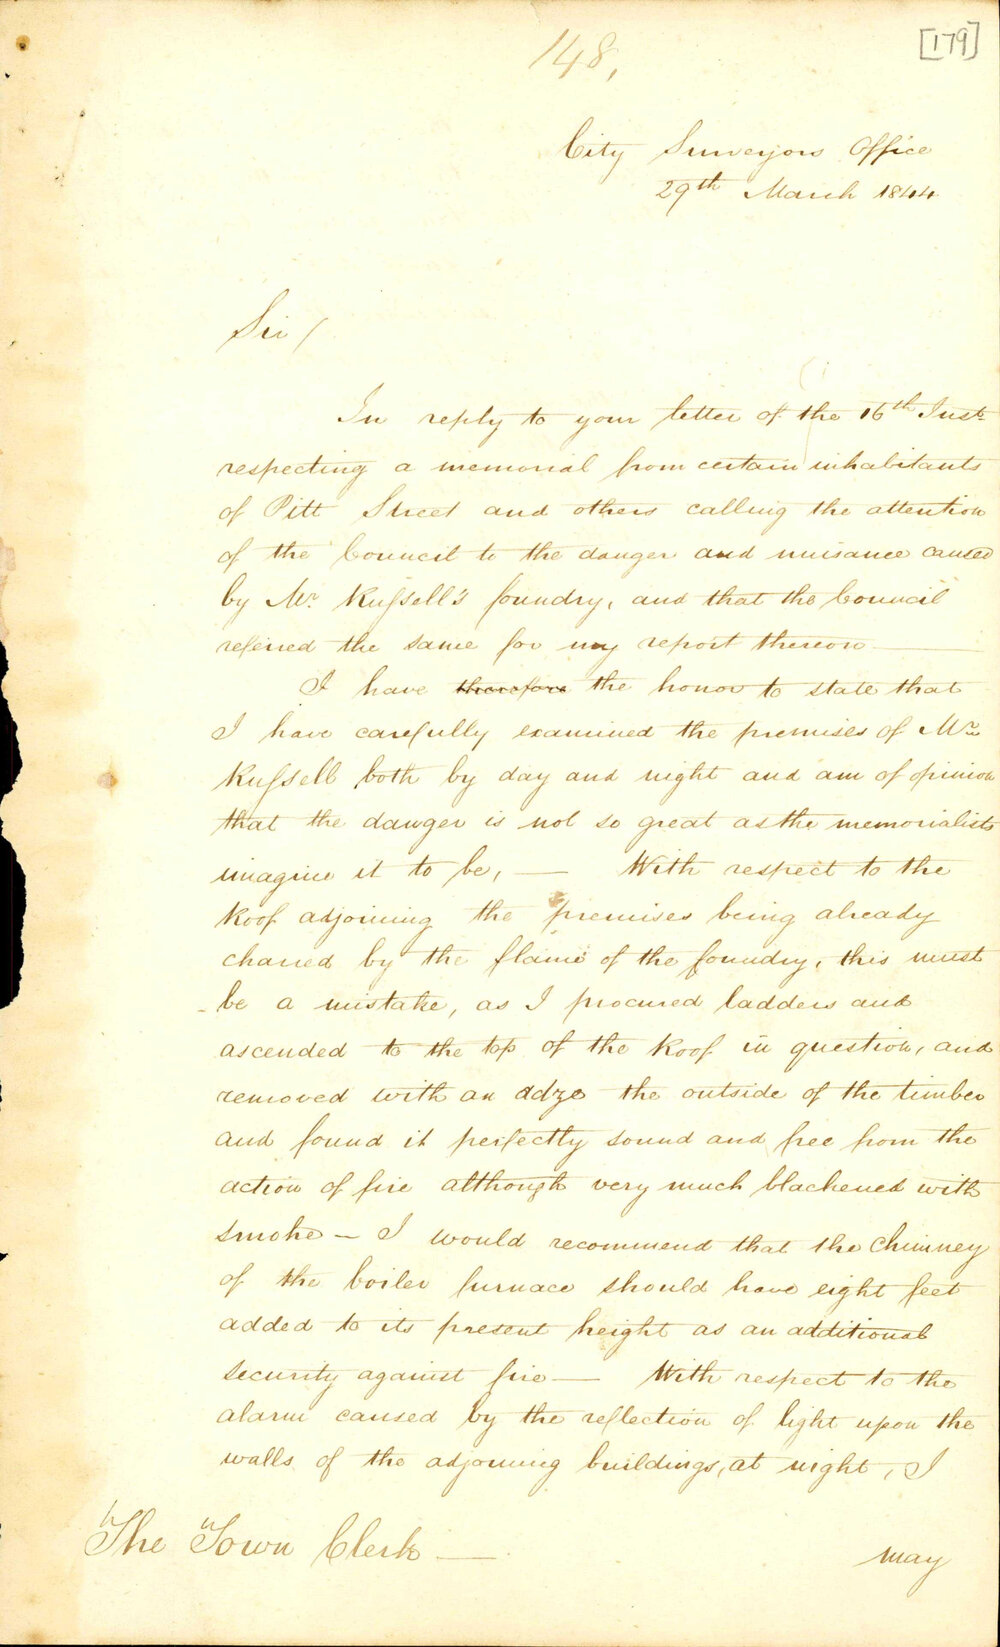 148,
[179]
City Surveyors Office
29th March 1844
Sir /
In reply to your letter of the 16th Inst
respecting a memorial from certain inhabitants
of Pitt Street and others calling the attention
of the Council to the danger and nuisance caused
by Mr Rufsell's foundry, and that the Council
referred the same for my report thereon —
I have therefore the honor to state that
I have carefully examined the premises of Mr
Rufsell both by day and night and am of opinion
that the danger is not so great as the memorialists
imagine it to be, — With respect to the
Roof adjoining the premises being already
charred by the flame of the foundry, this must
be a mistake, as I procured ladders and
ascended to the top of the Roof in question, and
removed with an adze the outside of the timber
and found it perfectly sound and free from the
action of fire although very much blackened with
smoke — I would recommend that the Chimney
of the boiler furnace should have eight feet
added to its present height as an additional
security against fire — With respect to the
alarm caused by the reflection of light upon the
walls of the adjoining buildings, at night, I
The Town Clerk —
may